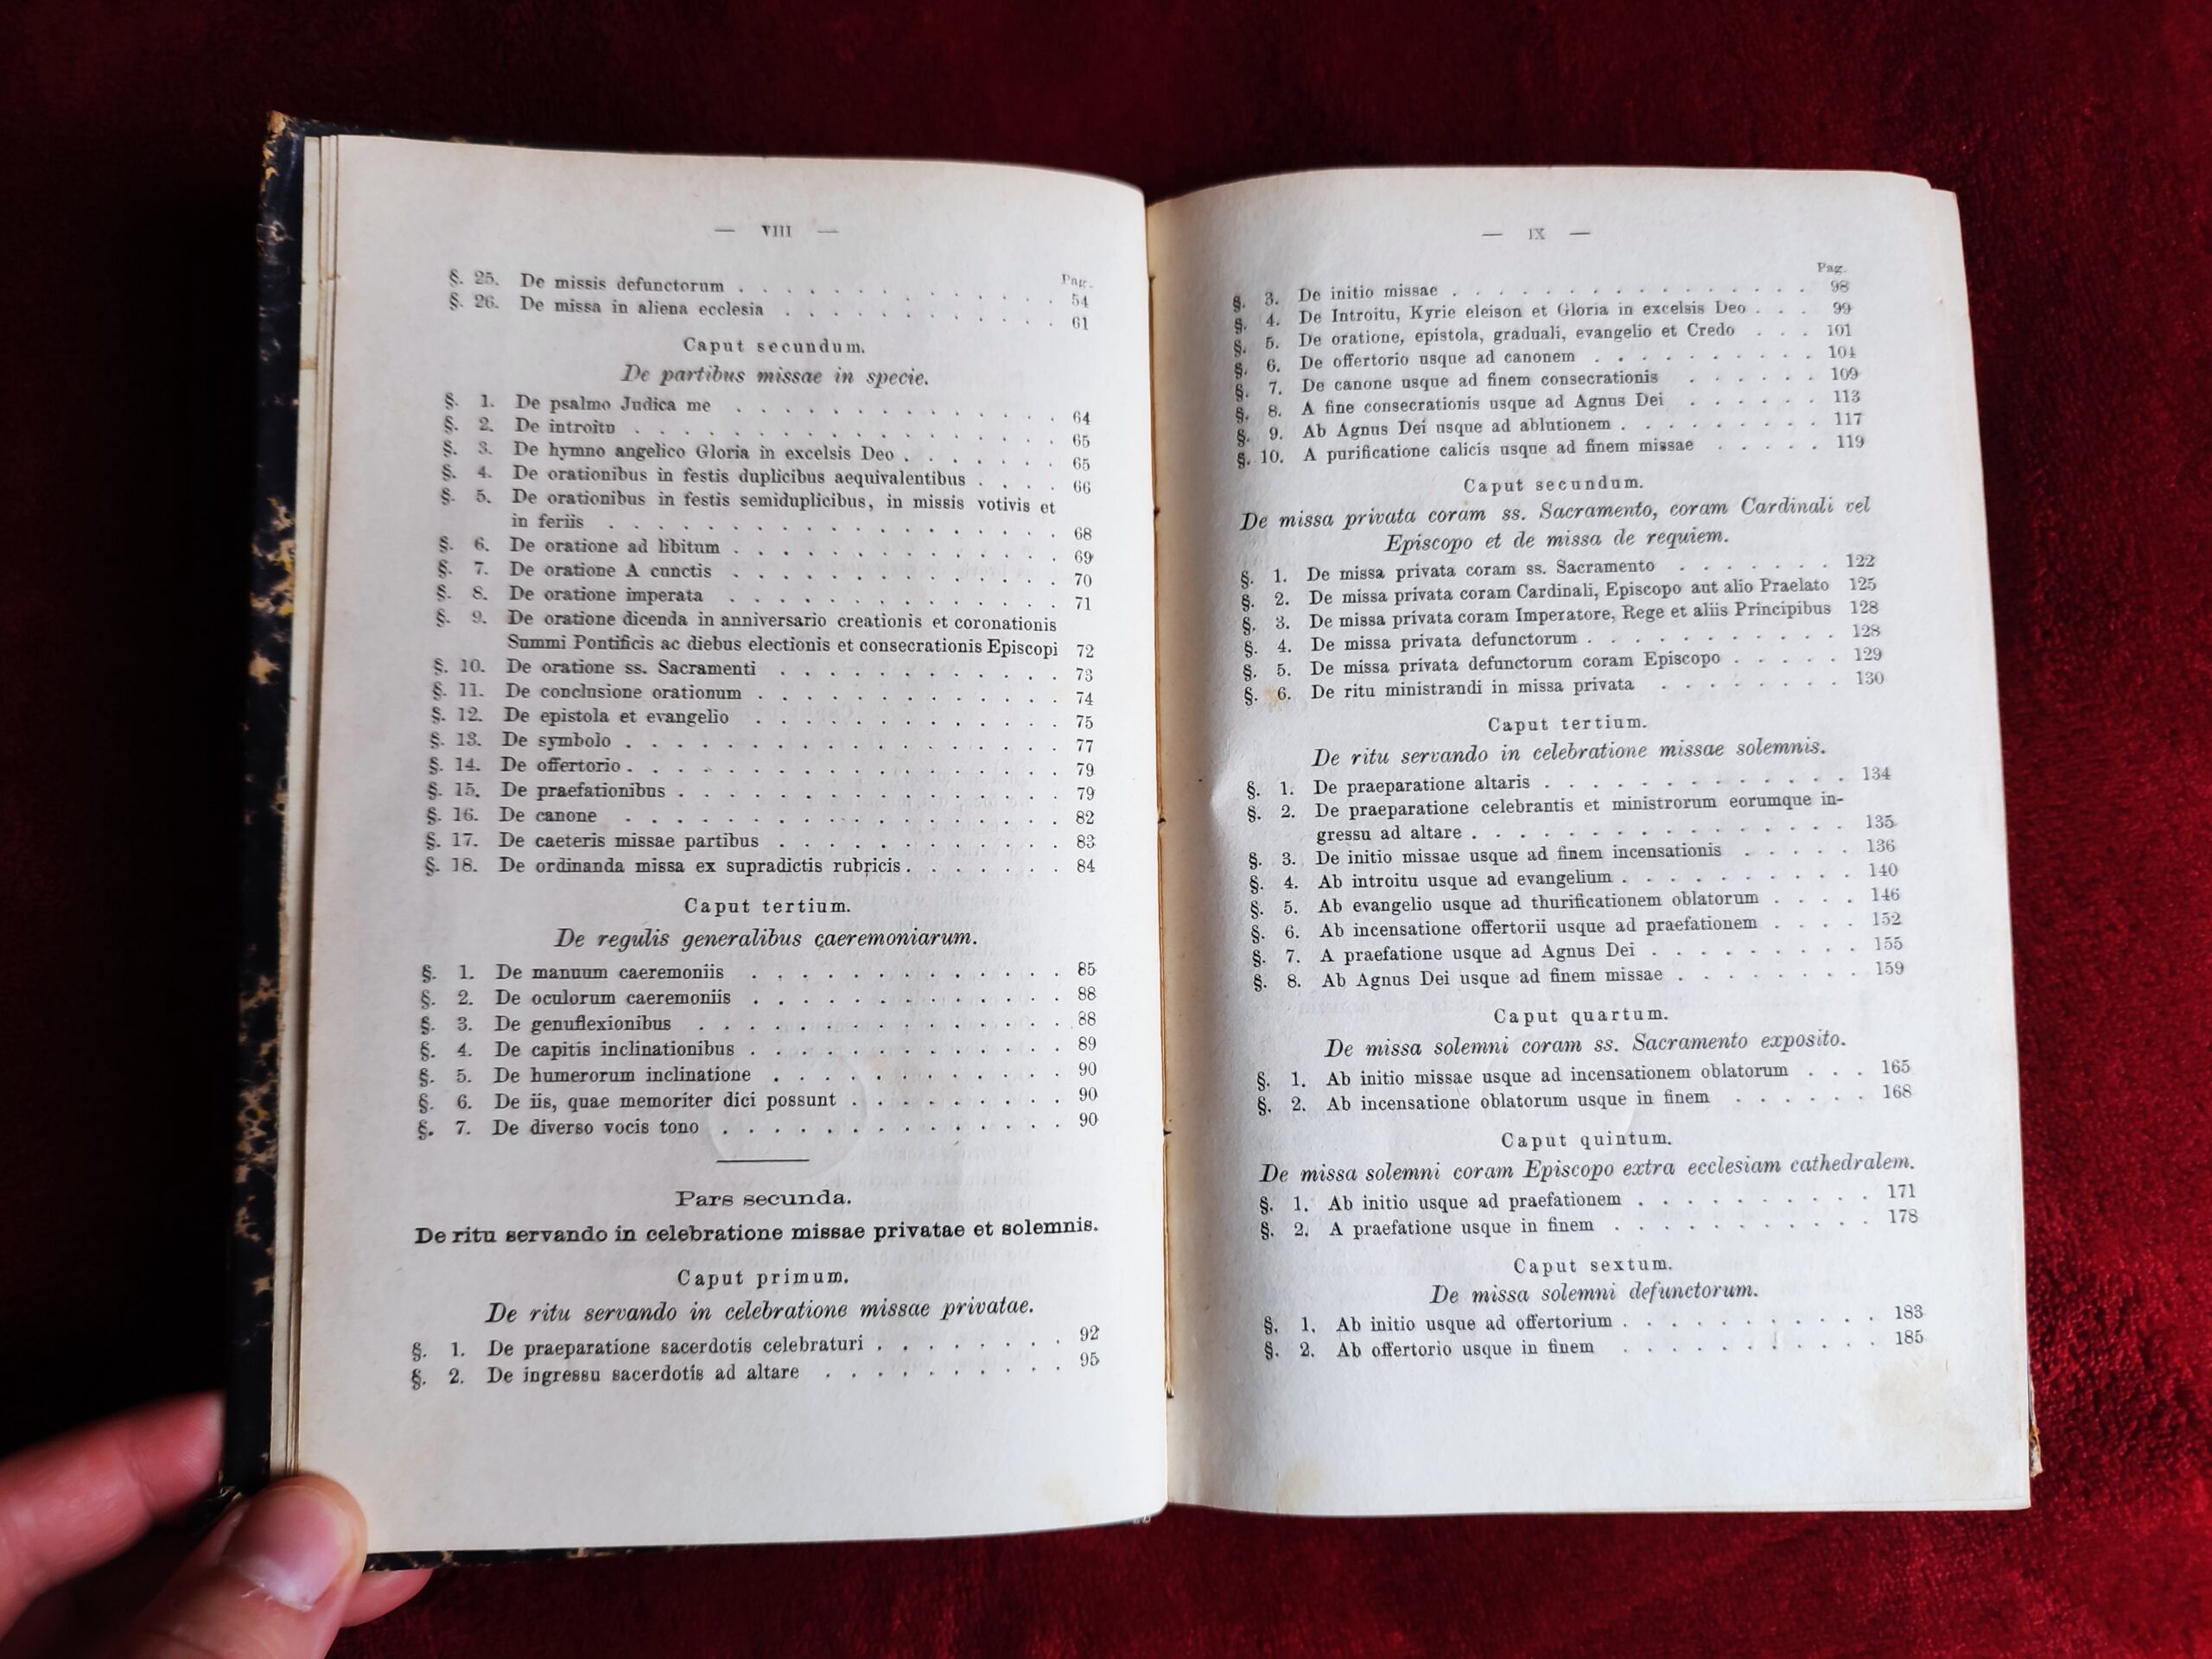 — VIII —
Pag.
§. 25. De missis defunctorum . . . . . . . . . . . . . . 54
§. 26. De missa in aliena ecclesia . . . . . . . . . . . . 61
Caput secundum.
De partibus missae in specie.
§. 1. De psalmo Judica me . . . . . . . . . . . . . . 64
§. 2. De introitu . . . . . . . . . . . . . . . . . . 65
§. 3. De hymno angelico Gloria in excelsis Deo . . . . . . . 65
§. 4. De orationibus in festis duplicibus aequivalentibus . . . . 66
§. 5. De orationibus in festis semiduplicibus, in missis votivis et
in feriis . . . . . . . . . . . . . . . . . . . 68
§. 6. De oratione ad libitum . . . . . . . . . . . . . . 69
§. 7. De oratione A cunctis . . . . . . . . . . . . . . 70
§. 8. De oratione imperata . . . . . . . . . . . . . . 71
§. 9. De oratione dicenda in anniversario creationis et coronationis
Summi Pontificis ac diebus electionis et consecrationis Episcopi 72
§. 10. De oratione ss. Sacramenti . . . . . . . . . . . . 73
§. 11. De conclusione orationum . . . . . . . . . . . . . 74
§. 12. De epistola et evangelio . . . . . . . . . . . . . 75
§. 13. De symbolo . . . . . . . . . . . . . . . . . . 77
§. 14. De offertorio . . . . . . . . . . . . . . . . . . 79
§. 15. De praefationibus . . . . . . . . . . . . . . . . 79
§. 16. De canone . . . . . . . . . . . . . . . . . . 82
§. 17. De caeteris missae partibus . . . . . . . . . . . . 83
§. 18. De ordinanda missa ex supradictis rubricis . . . . . . . 84
Caput tertium.
De regulis generalibus caeremoniarum.
§. 1. De manuum caeremoniis . . . . . . . . . . . . . 85
§. 2. De oculorum caeremoniis . . . . . . . . . . . . . 88
§. 3. De genuflexionibus . . . . . . . . . . . . . . . 88
§. 4. De capitis inclinationibus . . . . . . . . . . . . . 89
§. 5. De humerorum inclinatione . . . . . . . . . . . . 90
§. 6. De iis, quae memoriter dici possunt . . . . . . . . . 90
§. 7. De diverso vocis tono . . . . . . . . . . . . . . 90
Pars secunda.
De ritu servando in celebratione missae privatae et solemnis.
Caput primum.
De ritu servando in celebratione missae privatae.
§. 1. De praeparatione sacerdotis celebraturi . . . . . . . . 92
§. 2. De ingressu sacerdotis ad altare . . . . . . . . . . 95
— IX —
Pag.
§. 3. De initio missae . . . . . . . . . . . . . . . . 98
§. 4. De Introitu, Kyrie eleison et Gloria in excelsis Deo . . . 99
§. 5. De oratione, epistola, graduali, evangelio et Credo . . . 101
§. 6. De offertorio usque ad canonem . . . . . . . . . . 104
§. 7. De canone usque ad finem consecrationis . . . . . . 109
§. 8. A fine consecrationis usque ad Agnus Dei . . . . . . 113
§. 9. Ab Agnus Dei usque ad ablutionem . . . . . . . . . 117
§. 10. A purificatione calicis usque ad finem missae . . . . . 119
Caput secundum.
De missa privata coram ss. Sacramento, coram Cardinali vel
Episcopo et de missa de requiem.
§. 1. De missa privata coram ss. Sacramento . . . . . . . 122
§. 2. De missa privata coram Cardinali, Episcopo aut alio Praelato 125
§. 3. De missa privata coram Imperatore, Rege et aliis Principibus 128
§. 4. De missa privata defunctorum . . . . . . . . . . . 128
§. 5. De missa privata defunctorum coram Episcopo . . . . . 129
§. 6. De ritu ministrandi in missa privata . . . . . . . . 130
Caput tertium.
De ritu servando in celebratione missae solemnis.
§. 1. De praeparatione altaris . . . . . . . . . . . . . 134
§. 2. De praeparatione celebrantis et ministrorum eorumque in-
gressu ad altare . . . . . . . . . . . . . . . . 135
§. 3. De initio missae usque ad finem incensationis . . . . . 136
§. 4. Ab introitu usque ad evangelium . . . . . . . . . . 140
§. 5. Ab evangelio usque ad thurificationem oblatorum . . . . 146
§. 6. Ab incensatione offertorii usque ad praefationem . . . . 152
§. 7. A praefatione usque ad Agnus Dei . . . . . . . . . 155
§. 8. Ab Agnus Dei usque ad finem missae . . . . . . . . 159
Caput quartum.
De missa solemni coram ss. Sacramento exposito.
§. 1. Ab initio missae usque ad incensationem oblatorum . . . 165
§. 2. Ab incensatione oblatorum usque in finem . . . . . . 168
Caput quintum.
De missa solemni coram Episcopo extra ecclesiam cathedralem.
§. 1. Ab initio usque ad praefationem . . . . . . . . . . 171
§. 2. A praefatione usque in finem . . . . . . . . . . . 178
Caput sextum.
De missa solemni defunctorum.
§. 1. Ab initio usque ad offertorium . . . . . . . . . . . 183
§. 2. Ab offertorio usque in finem . . . . . . . . . . . 185